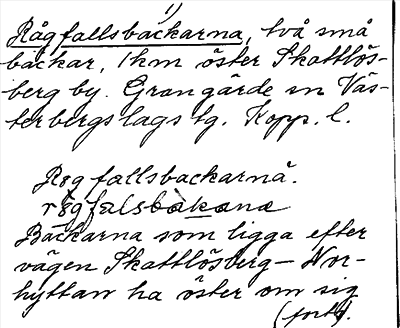 1)
Rågfallsbäckarna, två små
bäckar, 1 km öster Skattlös-
berg by. Grangärde sn Väs-
terbergslags tg. Kopp. l.
Rågfallsbackarnå.
rågfalsbàkanɑ
Bäckarna som ligga efter
vägen Skattlösberg — Nor-
hyttan ha öster om sig
(forts).